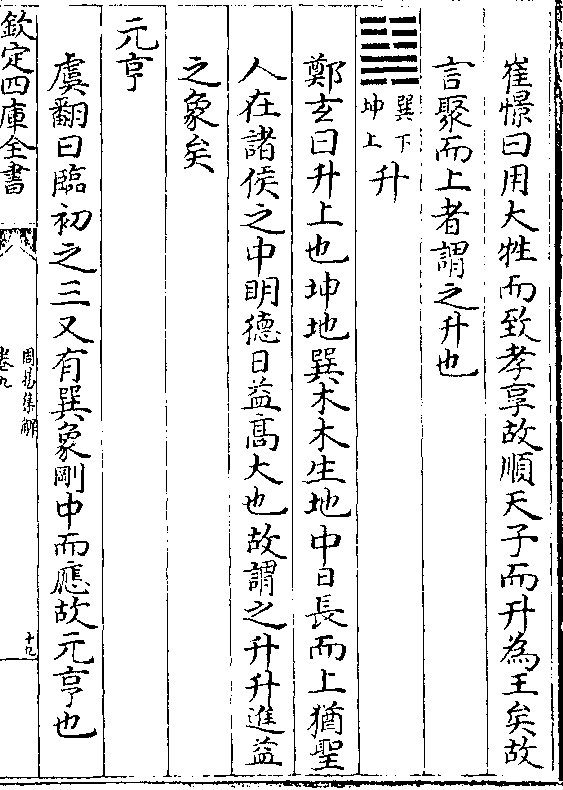 崔憬曰用大牲而致孝享故順天子而升為王矣故
言聚而上者謂之升也
巽下
坤上
升
鄭玄曰升上也坤地巽木木生地中日長而上猶聖
人在諸侯之中明德日益髙大也故謂之升升進益
之象矣
元亨
虞翻曰臨初之三又有巽象剛中而應故元亨也
欽定四庫全書
周易集解
卷九
十九